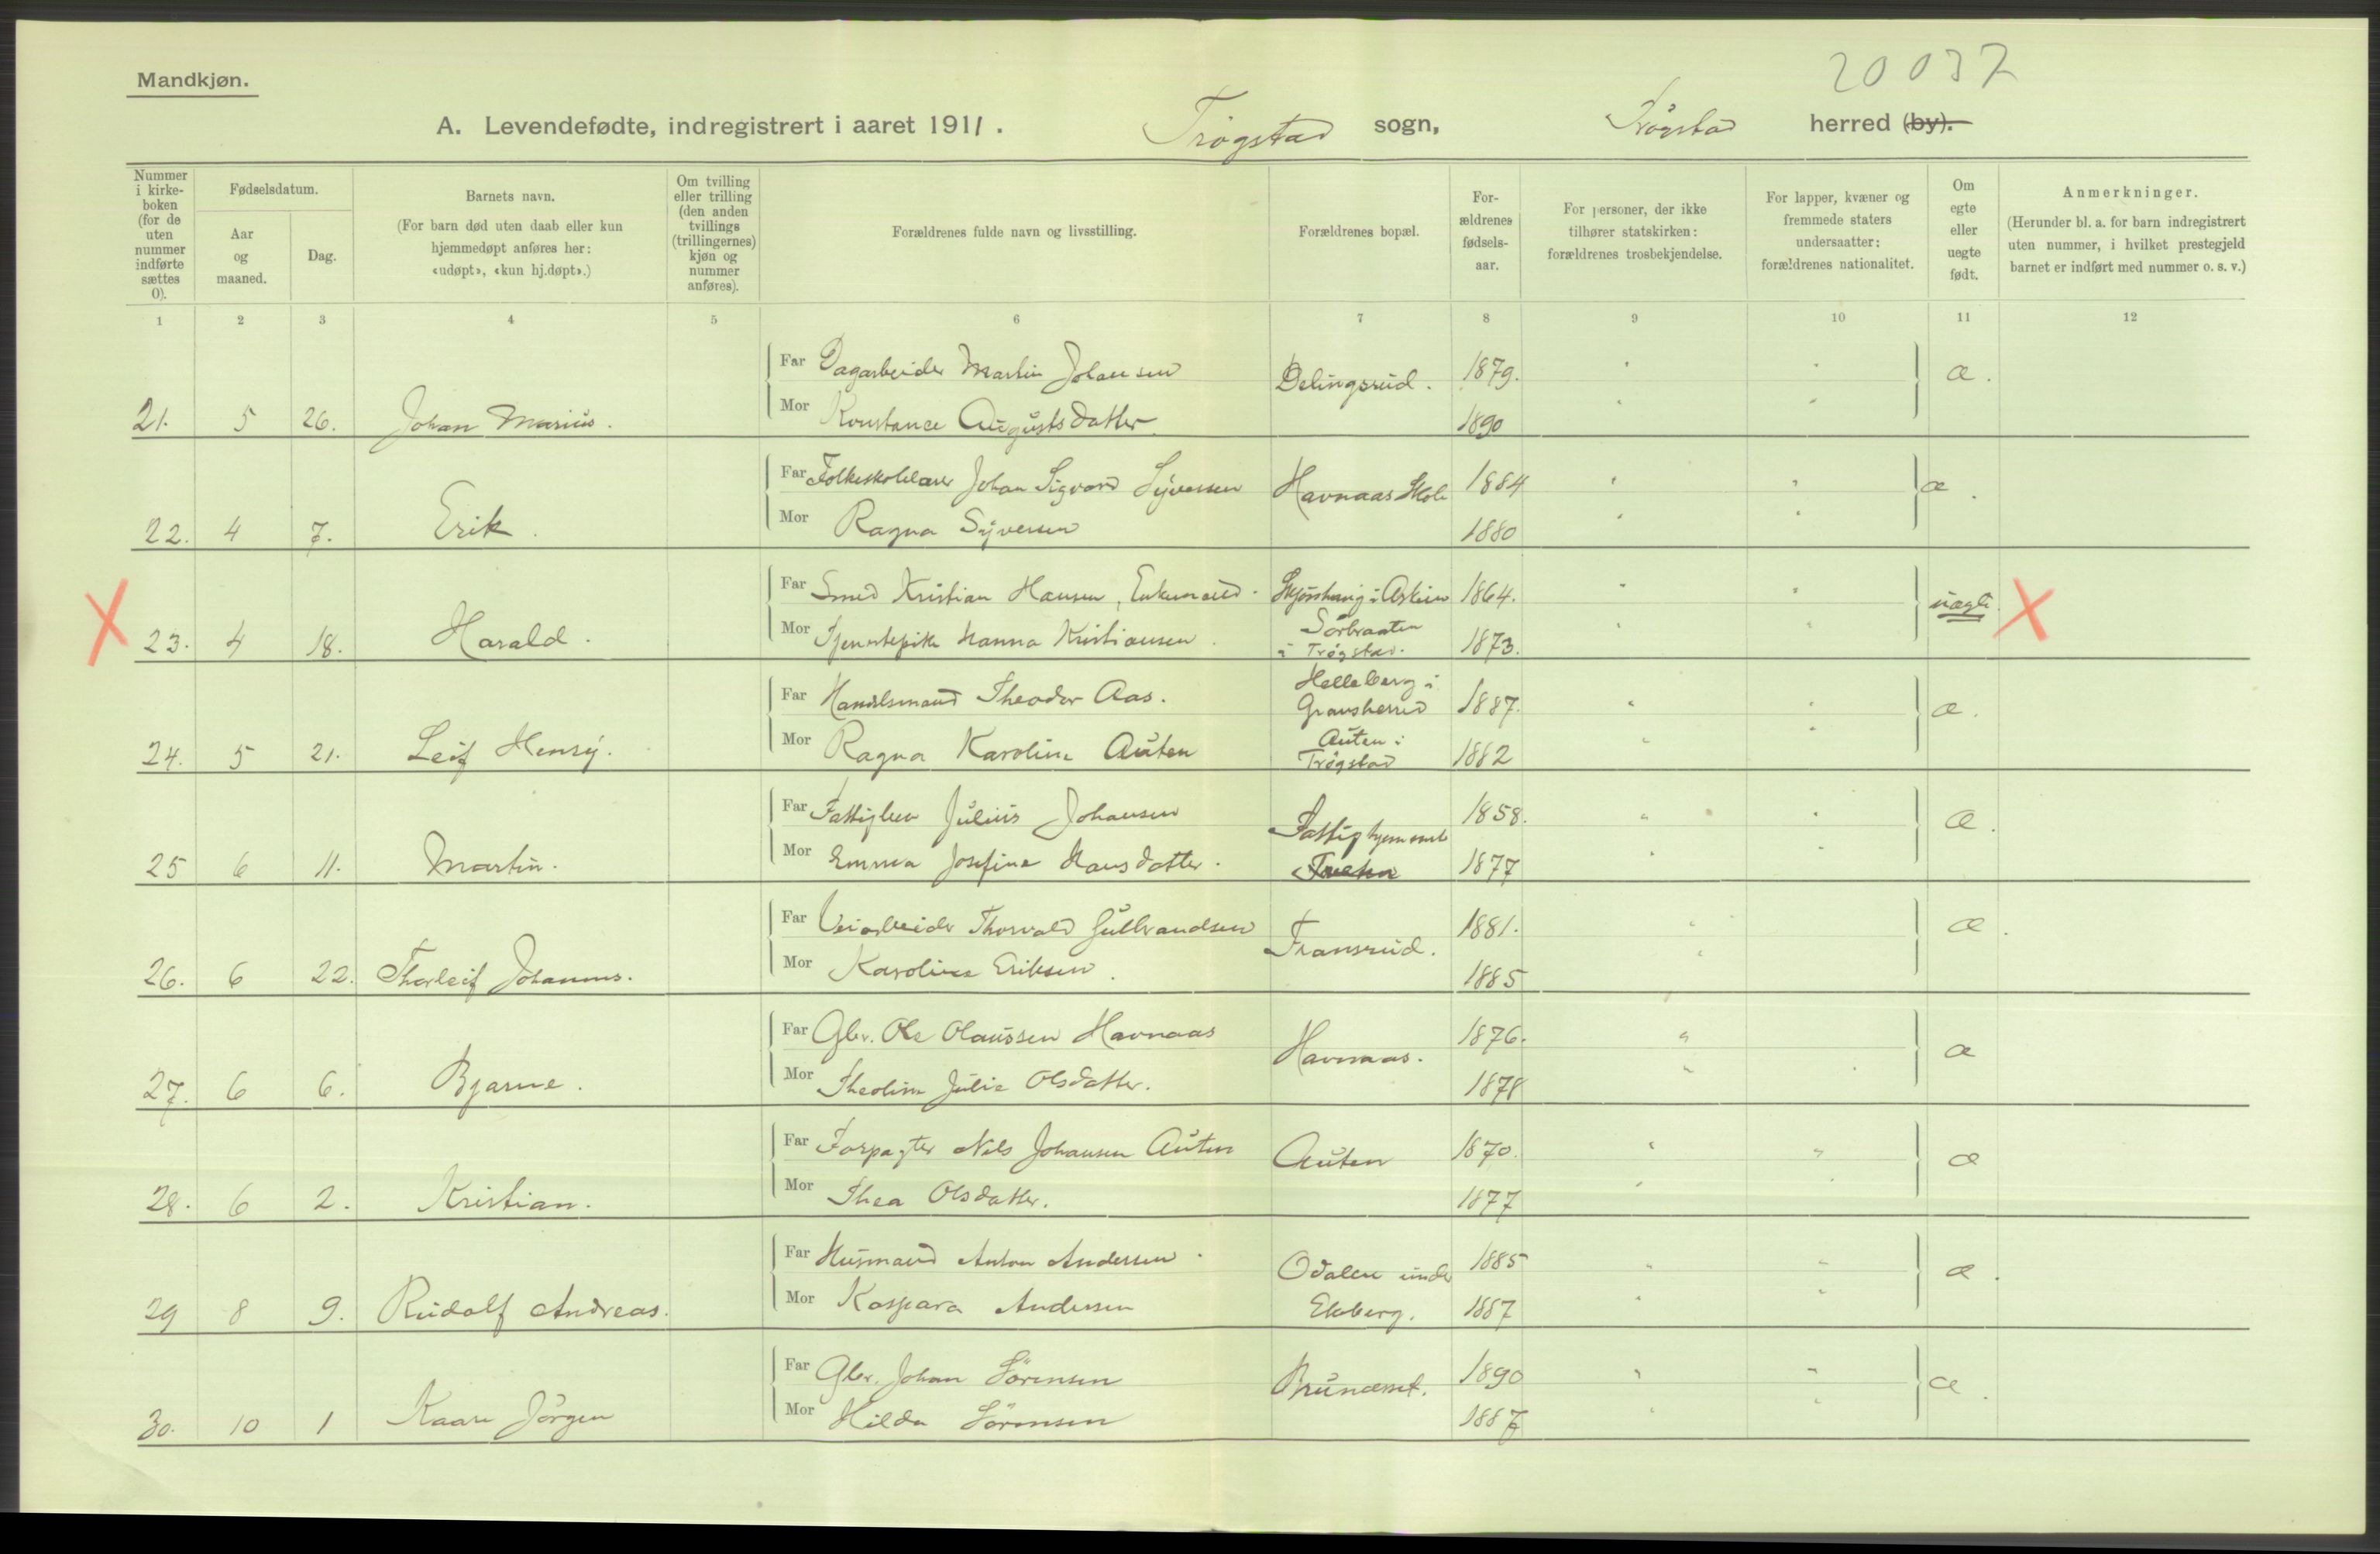 20037
Mandkjøn.
A. Levendefødte, indregistrert i aaret 1911. Trøgstad sogn, Trøgstad herred (by).
Nummer i kirkeboken (for de uten nummer indførte sættes 0).
Fødselsdatum.
Aar og maaned.
Dag.
Barnets navn.
(For barn død uten daab eller kun hjemmedøpt anføres her: «udøpt», «kun hj.døpt».)
Om tvilling eller trilling (den anden tvillings (trillingernes) kjøn og nummer anføres).
Forældrenes fulde navn og livsstilling.
Forældrenes bopæl.
Forældrenes fødselsaar.
For personer, der ikke tilhører statskirken: forældrenes trosbekjendelse.
For lapper, kvæner og fremmede staters undersaatter: forældrenes nationalitet.
Om egte eller uegte født.
Anmerkninger.
(Herunder bl. a. for barn indregistrert uten nummer, i hvilket prestegjeld barnet er indført med nummer o. s. v.)
1 2 3 4 5 6 7 8 9 10 11 12
Far Dagarbeider Martin Johansen Delingsrud. 1879. " " æ.
21. 5 26. Johan Marius. Mor Konstance Augustsdatter 1890 " "
Far Folkeskolelærer Johan Sigvard Syversen Havnaas Skole 1884 " " æ.
22. 4 7. Erik. Mor Ragna Syversen 1880 " "
Far Smed Kristian Hansen, Enkemand. i Askim 1864. " " uægte X
X 23. 4 18. Harald. Mor Tjenestepike Hanna Kristiansen. Sørbraaten i Trøgstad. 1873. "
Far Handelsmand Theodor Aas. Helleberg i Gransherred 1887. " " æ.
24. 5 21. Leif Henry. Mor Ragna Karoline Auten Auten i Trøgstad 1882 " "
Far Fattiglem Julius Johansen Fattighjemmet 1858. " " æ.
25 6 11. Martin. Mor Emma Josefine Hansdatter. 1877 " "
Far Veiarbeider Thorvald Gulbrandsen Fransrud. 1881. " æ.
26. 6 22. Thorleif Johannes. Mor Karoline Eriksen. 1885 "
Far Gbr. Ole Olaussen Havnaas Havnaas. 1876. " æ
27. 6 6. Bjarne. Mor Theoline Julie Olsdatter. 1878 "
Far Forpagter Nils Johansen Auten Auten 1870. " " æ
28. 6 2. Kristian. Mor Thea Olsdatter. 1877 "
Far Husmand Anton Andersen. Odalen under 1885 " " æ.
29 8 9. Rudolf Andreas. Mor Kaspara Andersen Ekeberg. 1887 " "
Far Gbr. Johan Sørensen 1890 " " æ.
30. 10 1 Kaare Jørgen Mor Hilda Sørensen 1887 " "